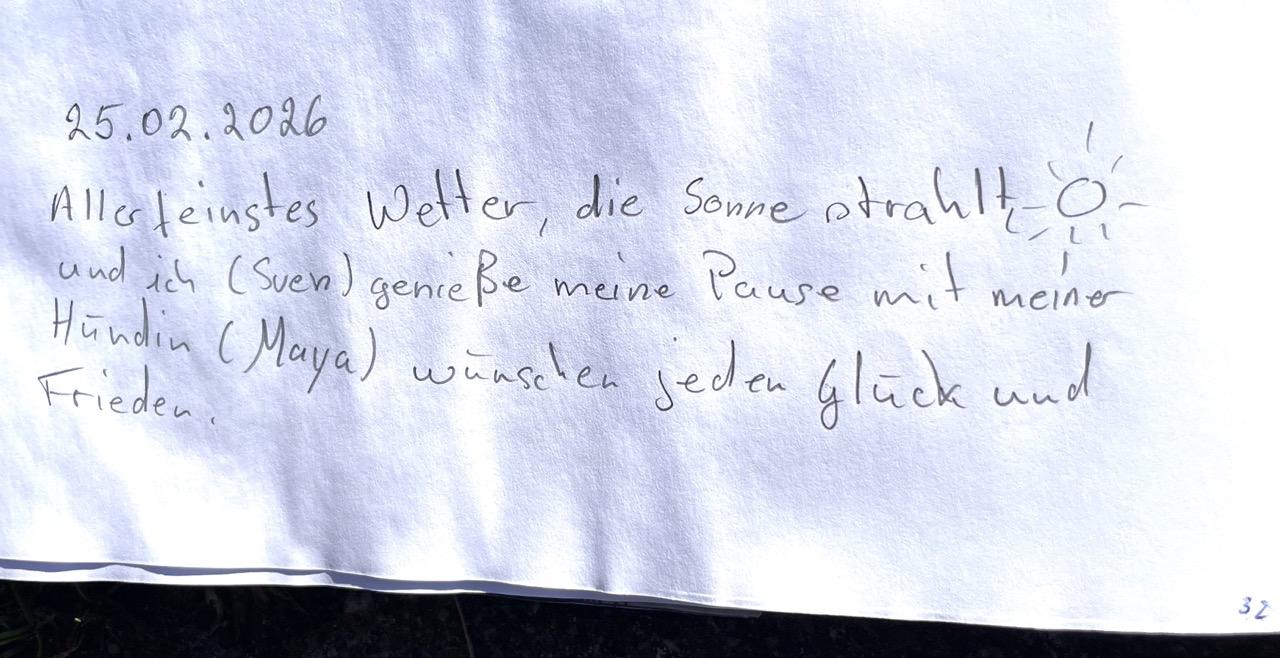 25.02.2026
Allerfeinstes Wetter, die Sonne strahlt,
und ich (Sven) genieße meine Pause mit meiner
Hündin (Maya) wünschen jeden Glück und
Frieden.
32